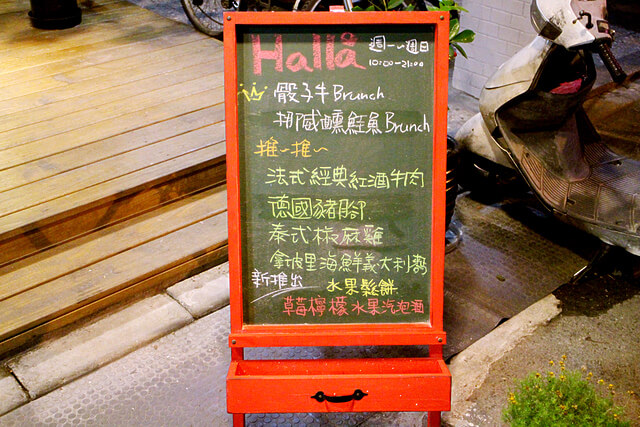 Hallå 週一~週日
10:00-21:00
骰子牛Brunch
挪威醺鮭魚Brunch
推~推~
法式經典紅酒牛肉
德國豬腳
泰式椒麻雞
拿坡里海鮮義大利麵
新推出 水果鬆餅
草莓檸檬水果汽泡酒